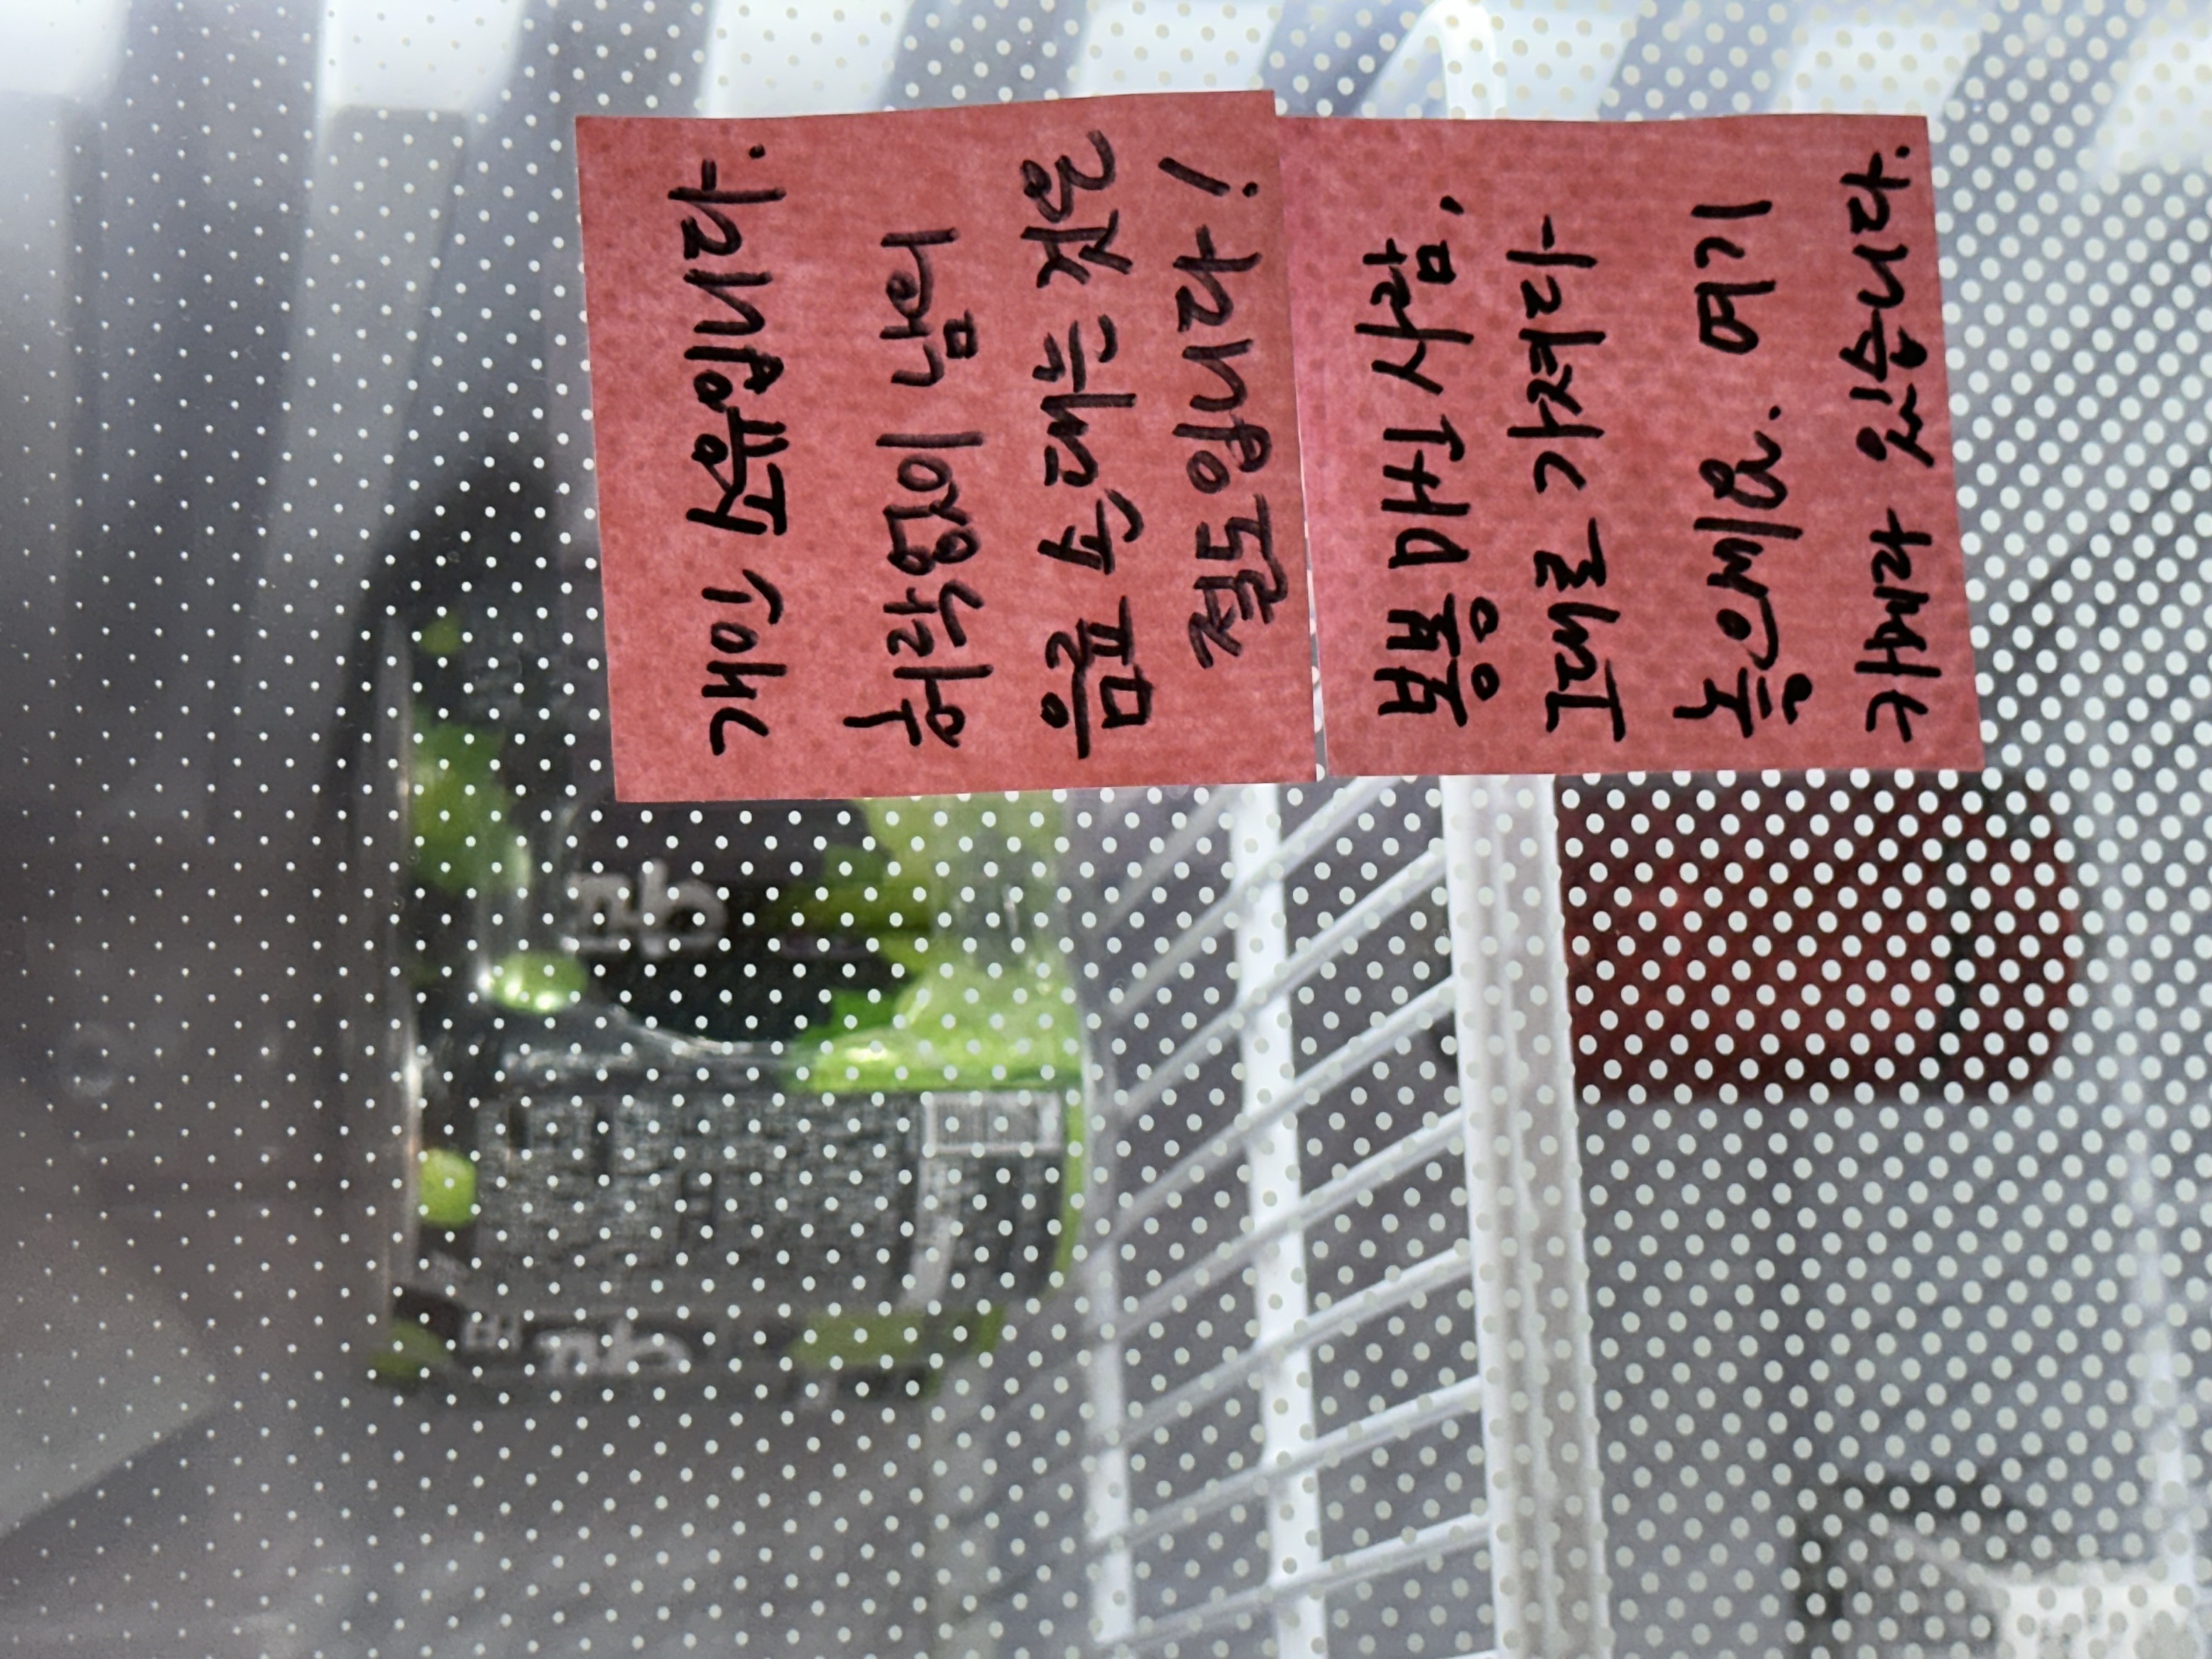 봉
개인 소유입니다.
허락없이 남의
음료 손대는 것은
절도입니다!
봉봉 마신 사람,
그대로 가져다
놓으세요. 여기
카메라 있습니다.